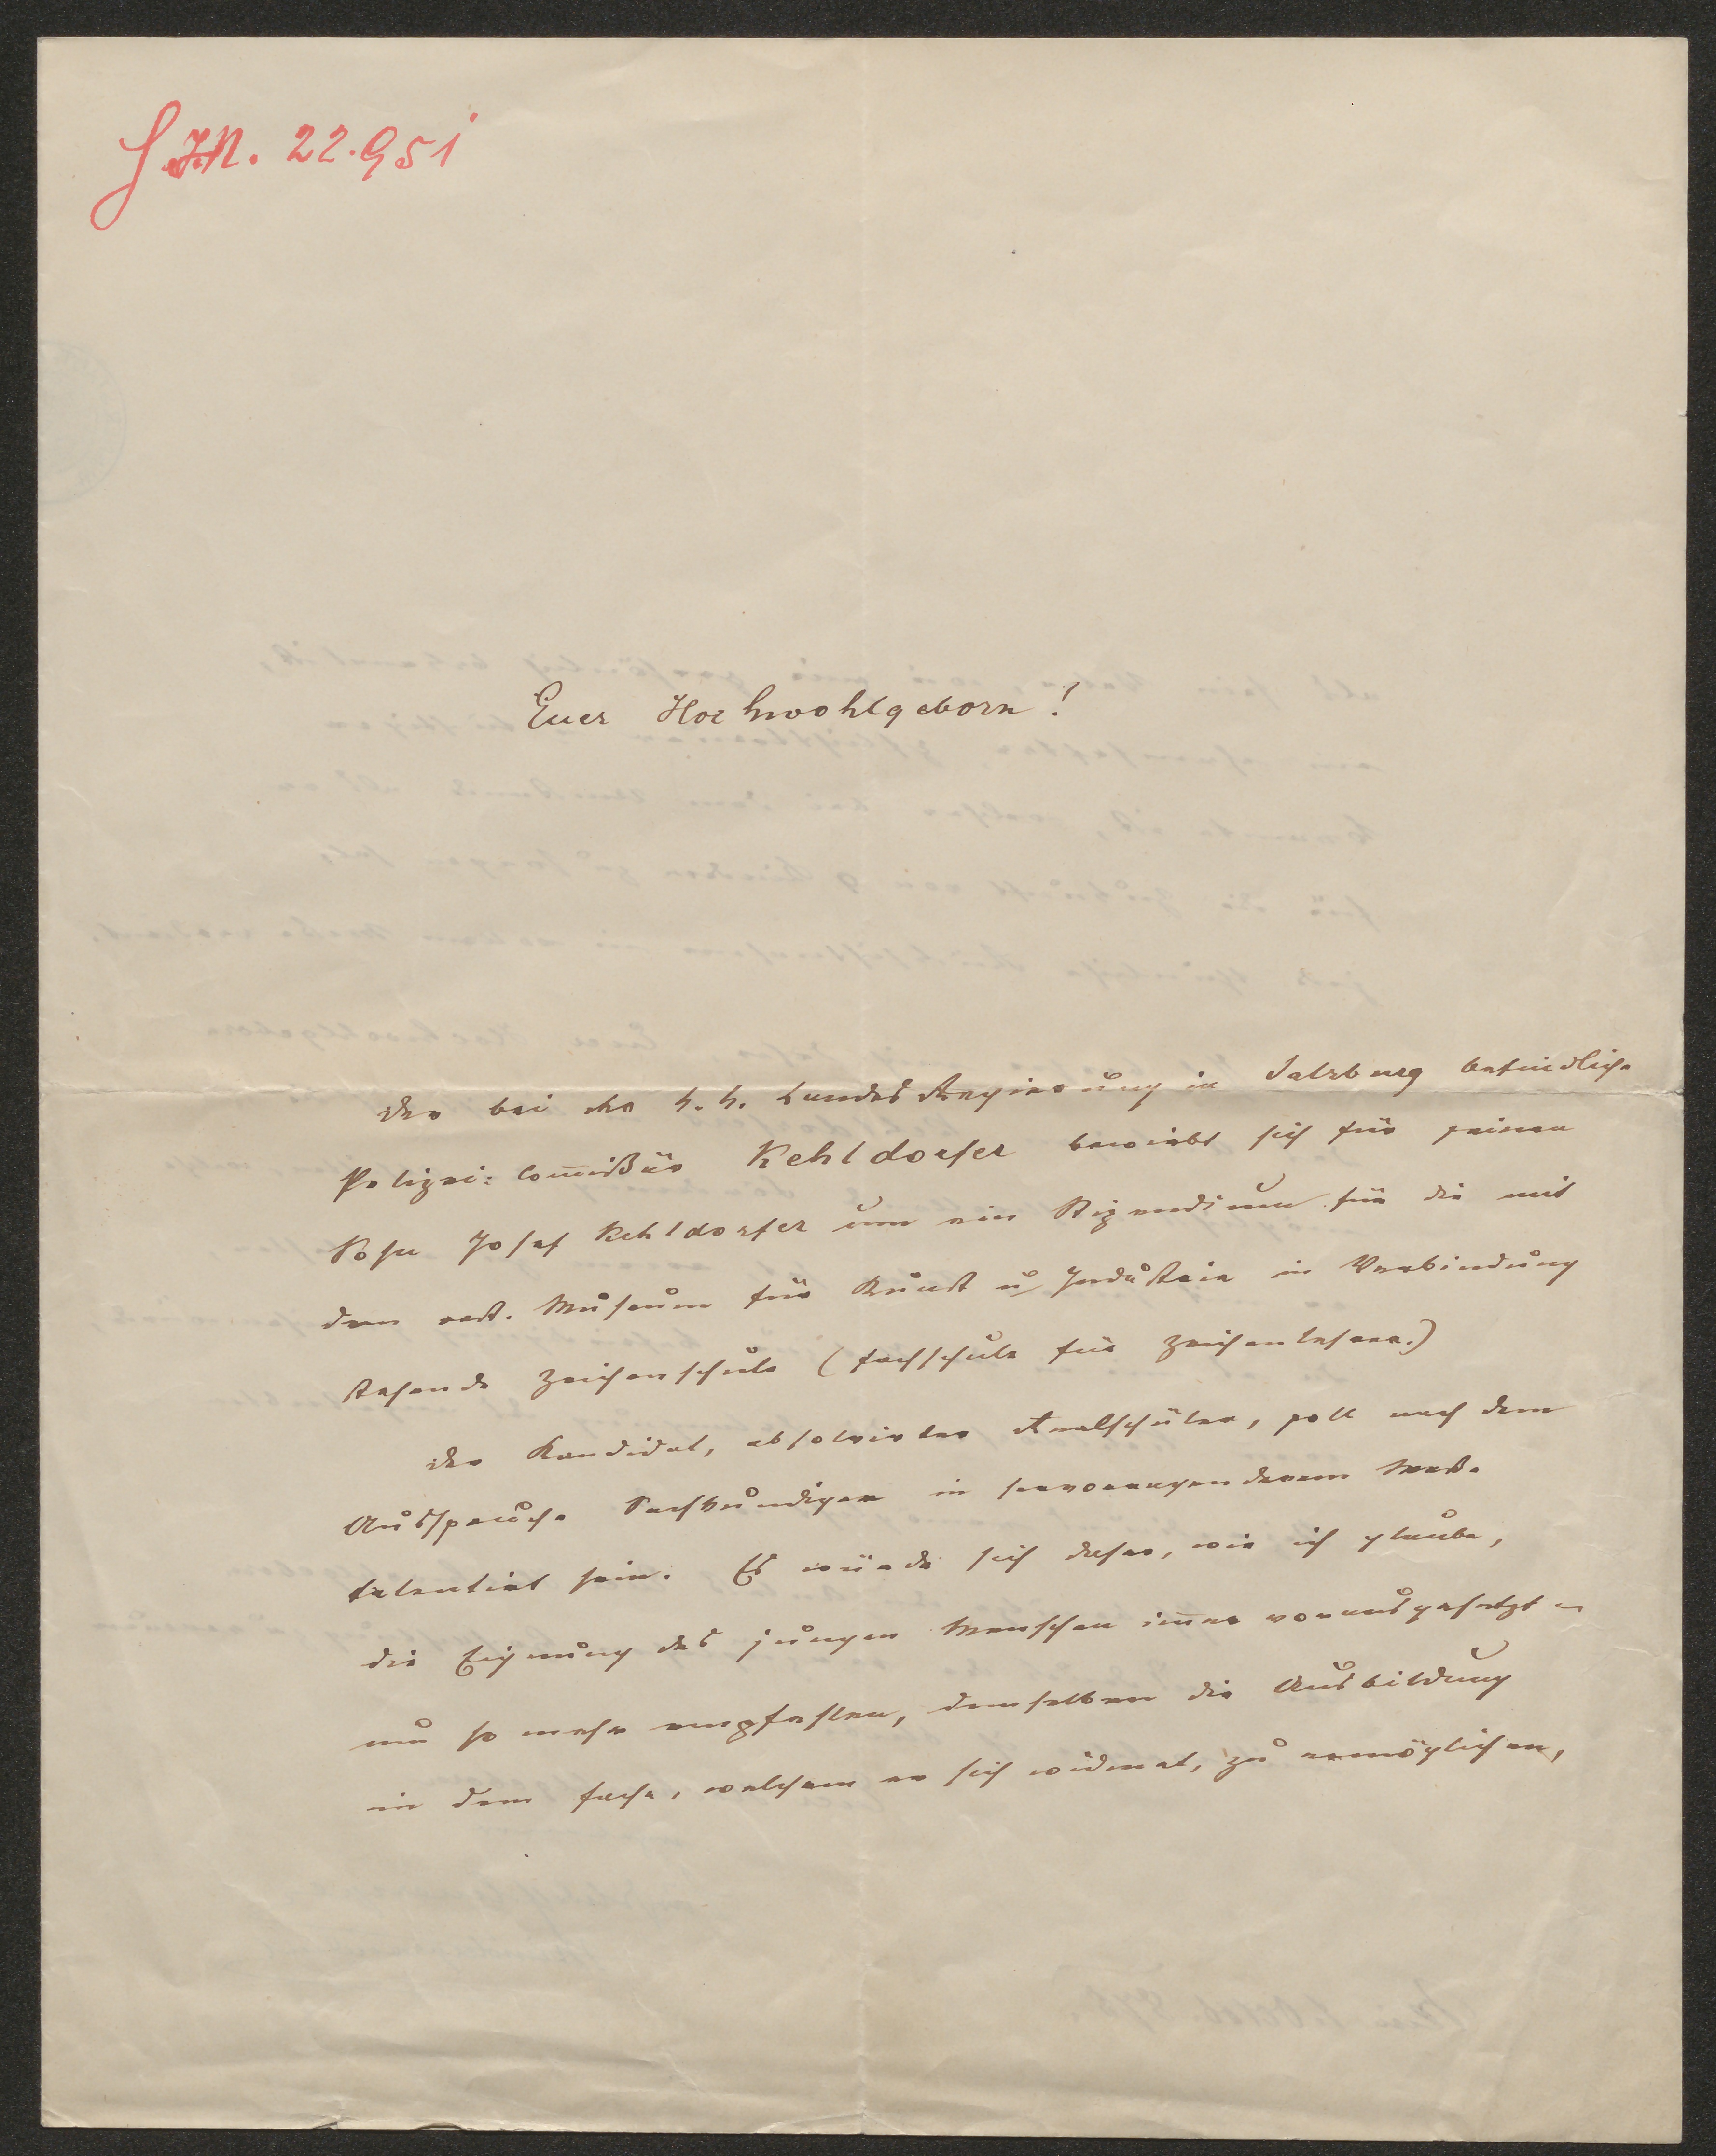 H.I.N. 22.951
Euer Hochwohlgeborn!
Der bei der k. k. Landes Regierung in Salzburg befindliche
Polizei: Com̅ißär Kehldorfer bewirbt sich für seinen
Sohn Josef Kehldorfer um ein Stipendium für die mit
dem oest. Museum für Kunst u Industrie in Verbindung
stehende Zeichenschule (Fachschule für Zeichenlehrer.)
Der Kandidat, absolvirter Realschüler, soll nach dem
Ausspruche Sachkundiger in hervorragenderem Maße
talentirt sein. Es würde sich daher, wie ich glaube,
die Eignung des jungen Menschen im̅er vorausgesetzt
um so mehr empfehlen, demselben die Ausbildung
in dem Fache, welchem er sich widmet, zu ermöglichen,